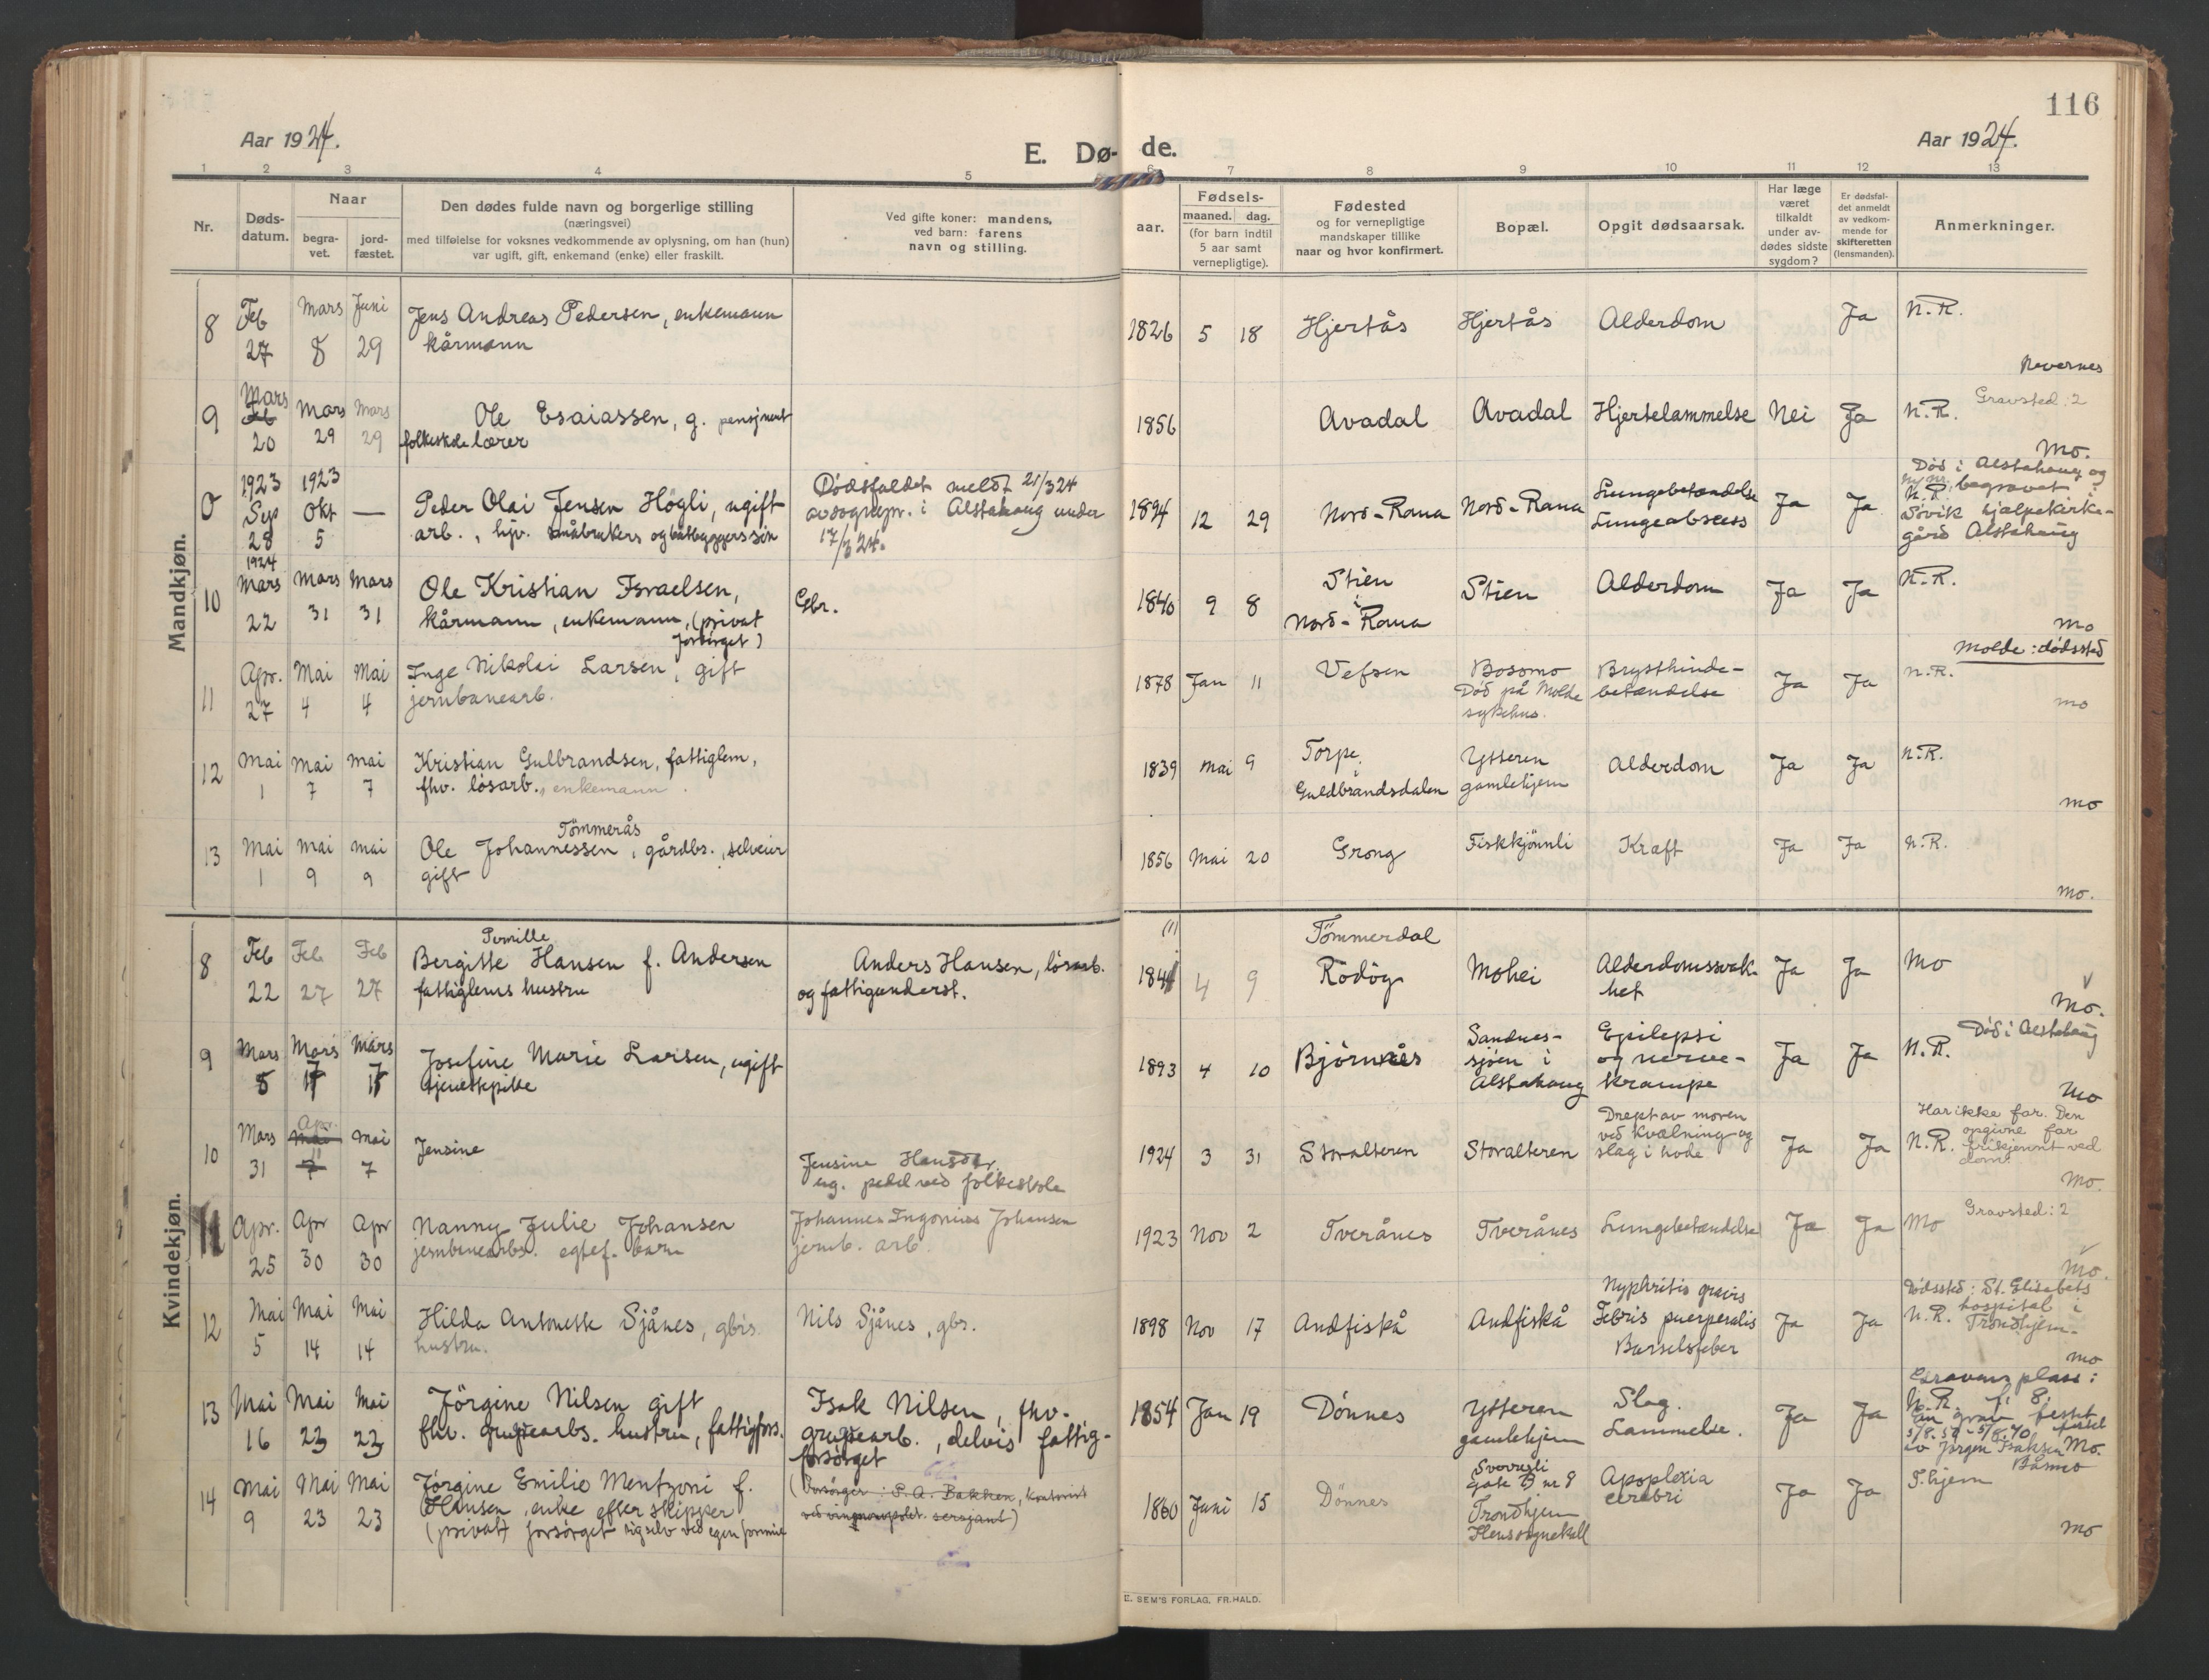 116
Aar 1924.
E. Dø-
de.
Aar 1924.
1 2 3 4 5 6 7 8 9 10 11 12 13
Nr.
Døds-
datum.
Naar
begra-
vet.
jord-
fæstet.
Den dødes fulde navn og borgerlige stilling
(næringsvei)
med tilføielse for voksnes vedkommende av oplysning, om han (hun)
var ugift, gift, enkemand (enke) eller fraskilt.
Ved gifte koner: mandens,
ved barn: farens
navn og stilling.
Fødsels-
aar.
maaned. dag.
(for barn indtil
5 aar samt
vernepligtige).
Fødested
og for vernepligtige
mandskaper tillike
naar og hvor konfirmert.
Bopæl.
Opgit dødsaarsak.
Har læge
været
tilkaldt
under av-
dødes sidste
sygdom?
Er dødsfal-
det anmeldt
av vedkom-
mende for
skifteretten
(lensmanden).
Anmerkninger.
Mandkjøn.
8
Feb
27
Mars
8
Juni
29
Jens Andreas Pedersen, enkemann
kårmann
1826 5 18
Hjertås
Hjertås
Alderdom
Ja
N.R.
Nevernes
9
Mars
Feb
20
Mars
29
Mars
29
Ole Esaiassen, g. pensjonert
folkeskolelærer
1856
Avadal
Avadal
Hjertelammelse
Nei
Ja
N.R.
Gravsted: 2
Mo.
0
1923
Sep
28
1923
Okt
5
—
Peder Olai Jensen Högli, ugift
arb., hjv. småbrukers og båtbyggers sön
Dödsfaldet meldt 21/3 24
av sognepr. i Alstahaug under
17/3 24.
1894 12 29
Nord-Rana
Nord-Rana
Lungebetændelse
Lungeabscess
Ja
Ja
N.R.
Död i Alstahaug og
begravet i
Sövik hjælpekirke-
gård Alstahaug
10
1924
Mars
22
Mars
31
Mars
31
Ole Kristian Israelsen,
kårmann, enkemann, (privat
forsörget)
Gbr.
1840 9 8
Stien
i
Nord-Rana
Stien
Alderdom
Ja
Ja
N.R.
Mo
11
Apr.
27
Mai
4
Mai
4
Inge Nikolai Larsen, gift
jernbanearb.
1878 Jan 11
Vefsen
Bosomo
Död på Molde
sykehus.
Brysthinde-
betændelse
Ja
Ja
Molde: dødssted
N.R.
Mo
12
Mai
1
Mai
7
Mai
7
Kristian Gulbrandsen, fattiglem,
fhv. lösarb., enkemann.
1839 Mai 9
Torpe,
i
Guldbrandsdalen
Ytteren
gamlehjem
Alderdom
Ja
Ja
N.R.
Mo
13
Mai
1
Mai
9
Mai
9
Tömmerås
Ole Johannessen, gårdbr., selveier
gift
1856 Mai 20
Grong
Fiskkjönnli
Kræft
Ja
Ja
N.R.
Mo.
Kvindekjøn.
8
Feb
22
Feb
27
Feb
27
Pernille
Bergitte Hansen f. Andersen
fattiglems hustru
Anders Hansen, lösarb.
og fattigunderst.
1841 4 9
Tömmerdal
Rödöy
Mohei
Alderdomssvak-
het
Ja
Ja
Mo
Mo.
9
Mars
5
Mars
17
Mars
17
Josefine Marie Larsen, ugift
tjenestepike
1893 4 10
Björnnes
Sandnes-
sjöen i
Alstahaug
Epilepsi
og nerve-
krampe
Ja
Ja
N.R.
Död i Alstahaug
Mo
10
Mars
31
Apr.
Mai
7
Mai
7
Jensine
Jensine Hansdtr.
ug. pedel ved folkeskole
1924 3 31
Storalteren
Storalteren
Drept av moren
ved kvælning og
slag i hode
Ja
Ja
N.R.
Har ikke far. Den
opgivne far
frikjennt ved
dom.
Mo.
11
Apr.
25
Apr
30
Apr
30
Nanny Julie Johansen
jernbanearbs. egtef. barn
Johannes Ingonius Johansen
jernb. arb.
1923 Nov 2
Tverånes
Tverånes
Lungebetændelse
Ja
Ja
Mo
Gravsted: 2
Mo.
12
Mai
5
Mai
14
Mai
14
Hilda Antonette Sjånes, gbrs.
hustru.
Nils Sjånes, gbr.
1898 Nov 17
Andfiskå
Andfiskå
Nyphritis gravis
Febris puerperalis
Barselfeber
Ja
Ja
N.R.
Dødssted: St. Elisabets
hospital i
Trondhjem.
Mo
13
Mai
16
Mai
23
Mai
23
Jörgine Nilsen gift
fhv. grubearbs. hustru, fattigfors.
Isak Nilsen, fhv.
grubearb., delvis fattig-
forsörget
1854 Jan 19
Dönnes
Ytteren
gamlehjem
Slag.
Lammelse.
Ja
Ja
Gravens plass:
N.R.
av Jörgen Isaksen Mo.
14
Mai
9
Mai
23
Mai
23
Jörgine Emilie Mentzoni f.
Hansen, enke efter skipper
(privat) forsörget sig selv ved egen formue
(Forsörger: P.A. Bakken, kontorist
ved vinmonopolet. sersjant)
1860 Juni 15
Dönnes
Sverresli
gate B nr 8
Trondhjem
Apoplexia
cerebri
Ja
Ja
Båsmo
T.hjem
Mo
E. SEM'S FORLAG, FR.HALD.